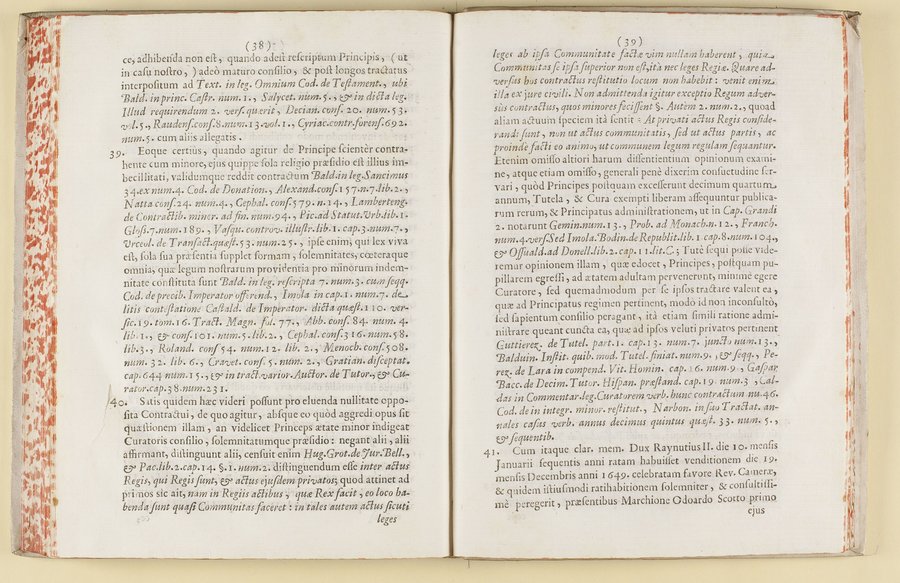 (38)
ce, adhibenda non est, quando adest rescriptum Principis, (ut
in casu nostro,) adeò maturo consilio, & post longos tractatus
interpositum ad Text. in leg. Omnium Cod. de Testament., ubi
Bald. in princ. Castr. num. 1., Salycet. num. 5., & in dicta leg.
Illud requirendum 2. vers. quærit, Decian. cons. 20. num. 53.
vol. 5., Raudens. cons. 8. num. 13. vol. 1., Cyriac. contr. forens. 692.
num. 5. cum aliis allegatis.
39. Eoque certius, quando agitur de Principe scienter contra-
hente cum minore, ejus quippe sola religio præsidio est illius im-
becillitati, validumque reddit contractum Bald. in leg. Sancimus
34. ex num. 4. Cod. de Donation., Alexand. cons. 157. n. 7. lib. 2.,
Natta cons. 24. num. 4., Cephal. cons. 579. n. 14., Lamberteng.
de Contractib. minor. ad fin. num. 94., Pic. ad Statut. Urb. lib. 1.
Gloss. 7. num. 189., Vasqu. controv. illustr. lib. 1. cap. 3. num. 7.,
Urceol. de Transact. quæst. 53. num. 25., ipse enim, qui lex viva
est, sola sua præsentia supplet formam, solemnitates, cœteraque
omnia, quæ legum nostrarum providentia pro minorum indem-
nitate constituta sunt Bald. in leg. rescripta 7. num. 3. cum seqq.
Cod. de precib. Imperator offerend., Imola in cap. 1. num. 7. de
litis contestatione Castald. de Imperator. dicta quæst. 110. ver-
sic. 19. tom. 16. Tract. Magn. fol. 77., Abb. cons. 84. num. 4.
lib. 1., & cons. 101. num. 5. lib. 2., Cephal. cons. 316. num. 58.
lib. 3., Roland. cons 54. num. 12. lib. 2., Menoch. cons. 508.
num. 32. lib. 6., Cravet. cons. 5. num. 2., Gratian. disceptat.
cap. 644 num. 15., & in tract. varior. Auctor. de Tutor., & Cu-
rator. cap. 38. num. 231.
40. Satis quidem hæc videri possunt pro eluenda nullitate oppo-
sita Contractui, de quo agitur, absque eo quòd aggredi opus sit
quæstionem illam, an videlicet Princeps ætate minor indigeat
Curatoris consilio, solemnitatumque præsidio: negant alii, alii
affirmant, distinguunt alii, censuit enim Hug. Grot. de Jur. Bell.,
& Pac. lib. 2. cap. 14. §. 1. num. 2. distinguendum esse inter actus
Regis, qui Regis sunt, & actus ejusdem privatos; quod attinet ad
primos sic ait, nam in Regiis actibus, quæ Rex facit, eo loco ha-
benda sunt quasi Communitas faceret: in tales autem actus sicuti
leges
(39)
leges ab ipsa Communitate factæ vim nullam haberent, quia
Communitas se ipsa superior non est, ità nec leges Regiæ. Quare ad-
versus hos contractus restitutio locum non habebit: venit enim
illa ex jure civili. Non admittenda igitur exceptio Regum adver-
sus contractus, quos minores fecissent §. Autem 2. num. 2., quoad
aliam actuum speciem ità sentit: At privati actus Regis conside-
randi sunt, non ut actus communitatis, sed ut actus partis, ac
proindè facti eo animo, ut communem legum regulam sequantur.
Etenim omisso altiori harum dissentientium opinionum exami-
ne, atque etiam omisso, generali penè dixerim consuetudine ser-
vari, quòd Principes postquam excesserunt decimum quartum
annum, Tutela, & Cura exempti liberam assequuntur publica-
rum rerum, & Principatus administrationem, ut in Cap. Grandi
2. notarunt Gemin. num. 13., Prob. ad Monach. n. 12., Franch.
num. 4. vers. Sed Imola. Bodin. de Republit. lib. 1 cap. 8. num. 104.,
& Ossuald. ad Donell. lib. 2. cap. 11. lit. C; Tutè sequi posse vide-
remur opinionem illam, quæ edocet, Principes, postquam pu-
pillarem egressi, ad ætatem adultam pervenerunt, minimè egere
Curatore, sed quemadmodum per se ipsos tractare valent ea,
quæ ad Principatus regimen pertinent, modò id non inconsultò,
sed sapientum consilio peragant, ità etiam simili ratione admi-
nistrare queant cuncta ea, quæ ad ipsos veluti privatos pertinent
Guttiereg. de Tutel. part. 1. cap. 13. num. 7. juncto num. 13.,
Balduin. Instit. quib. mod. Tutel. finiat. num. 9., & seqq., Pe-
reg. de Lara in compend. Vit. Homin. cap. 16. num. 9., Gaspar
Bacc. de Decim. Tutor. Hispan. præstand. cap. 19. num. 3, Cal-
das in Commentar. leg. Curatorem verb. hunc contractum nu. 46.
Cod. de in integr. minor. restitut., Narbon. in suo Tractat. an-
nales casus verb. annus decimus quintus quæst. 33. num. 5.,
& sequentib.
41. Cum itaque clar. mem. Dux Raynutius II. die 10. mensis
Januarii sequentis anni ratam habuisset venditionem die 19.
mensis Decembris anni 1649. celebratam favore Rev. Cameræ,
& quidem istiusmodi ratihabitionem solemniter, & consultissi-
mè peregerit, præsentibus Marchione Odoardo Scotto primo
ejus